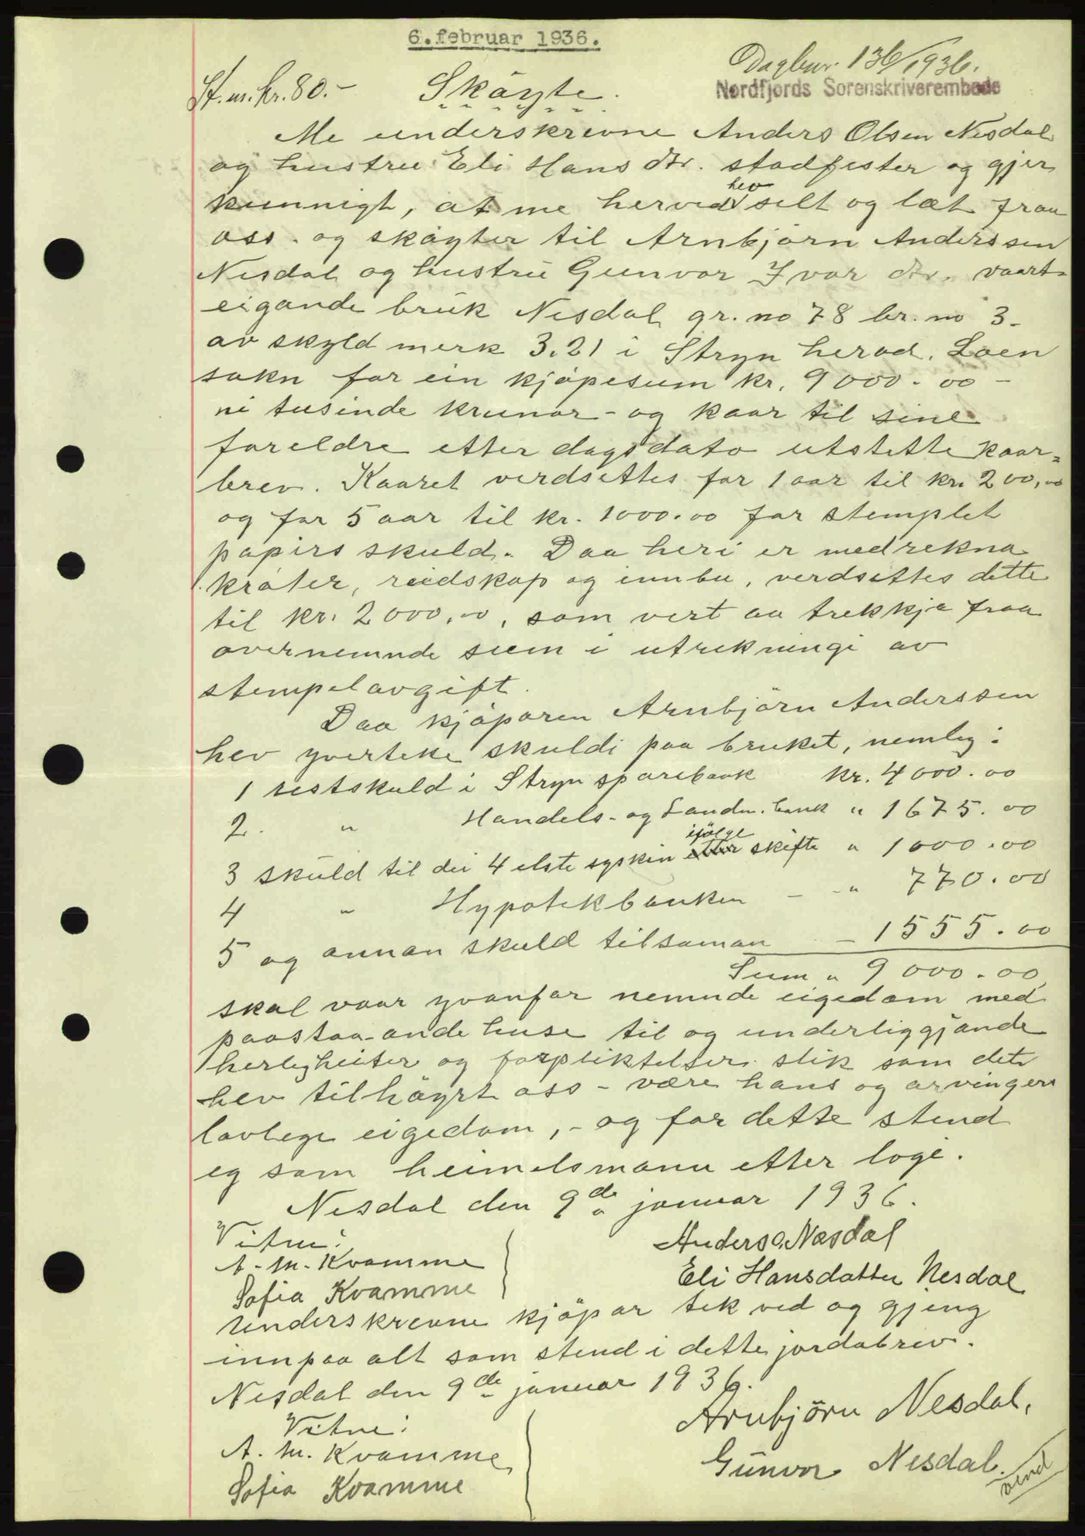 6.februar 1936.
Dagbnr. 136/1936.
Nordfjords Sorenskriverembede
St.m.kr.80.- Skäyte.
Me underskrevne Anders Olsen Nesdal
og hustru Eli Hans dtr. stadfester og gjer
kunnigt, at me herved hev selt og læt fraa
oss. og skäyter til Arnbjörn Anderssen
Nesdal og hustru Gunvor Ivar dtr. vaart
eigande bruk Nesdal gr. no 78 br. no 3-
av skyld merk 3.21 i Stryn herad. Loen
sokn for ein kjöpesum kr. 9000.00 -
ni tusinde krunor - og kaar til sine
foreldre etter dagsdato utstette kaar=
brev. Kaaret verdsettes for 1 aar til kr. 200,00
og for 5 aar til kr. 1000.00 for stemplet
papirs skuld. Daa heri er medrekna
kröter, reidskap og innbu, verdsettes dette
til kr. 2000,00, som vert aa trekkja fraa
overnemnde sum i utrekningi av
stempelavgift.
Daa kjöparen Arnbjörn Anderssen
hev yverteke skuldi paa bruket, nemleg:
1 restskuld i Stryn sparebank kr. 4000.00
2. " Handels- og Landm. bank " 1675.00
3 skuld til dei 4 elste syskin ifölge skifte " 1000.00
4 " Hypotekbanken - " 770.00
5 og annan skuld tilsaman - 1555.00
Sum " 9000.00
skal vaar yvanfor nemnde eigedom med
paastaa-ande huse til og underliggjande
herligheiter og forpliktelser slik som det
hev tilhäyrt oss - være hans og arvingers
lovlege eigedom, - og for dette stend
eg som heimelsmann etter logi.
Nesdal den 9de januar 1936.
Vitne:
A. M. Kvamme
Sofia Kvamme
Anders O. Nesdal
Eli Hansdatter Nesdal
Underskrevne kjöpar tek ved og gjeng
innpaa alt som stend i dette jordabrev.
Nesdal den 9de januar 1936.
Vitne:
A. M. Kvamme
Sofia Kvamme
Arnbjörn Nesdal,
Gunvor Nesdal.
vend